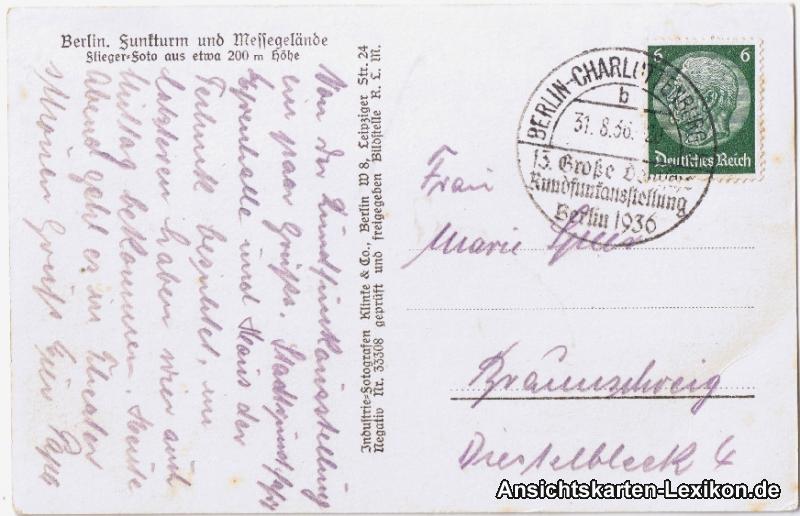 Berlin. Funkturm und Messegelände
Flieger-Foto aus etwa 200 m Höhe
Von der Rundfunkausstellung
ein paar Grüße. Stadtrundfahrt
und Haus der
Technik besichtet, im
letzteren haben wir auch
Mittag bekommen. Heute
Abend geht es ins Theater
Schönen Gruß Euer Papa
Industrie-Fotografen Klinke & Co., Berlin W 8, Leipziger Str. 24
Negativ Nr. 33308 geprüft und freigegeben Bildstelle R. L. M.
BERLIN-CHARLOTTENBURG
b
31.8.36.
13. Große Deutsche
Rundfunkausstellung
Berlin 1936
6 6
Deutsches Reich
Frau
Marie
Braunschweig
Diestelbleek 4
Ansichtskarten-Lexikon.de